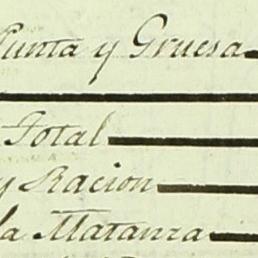 Punta y Gruesa
Total
y Racion
la Matanza